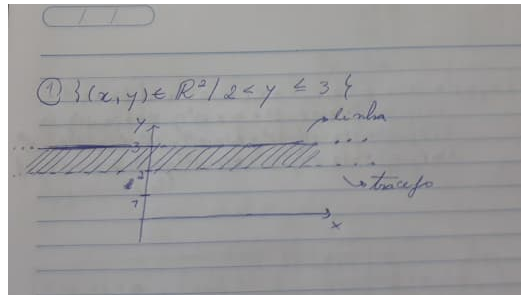 ① {(x,y) ∈ R² / 2 < y ≤ 3}
y
linha
3
2
tracejo
1
x